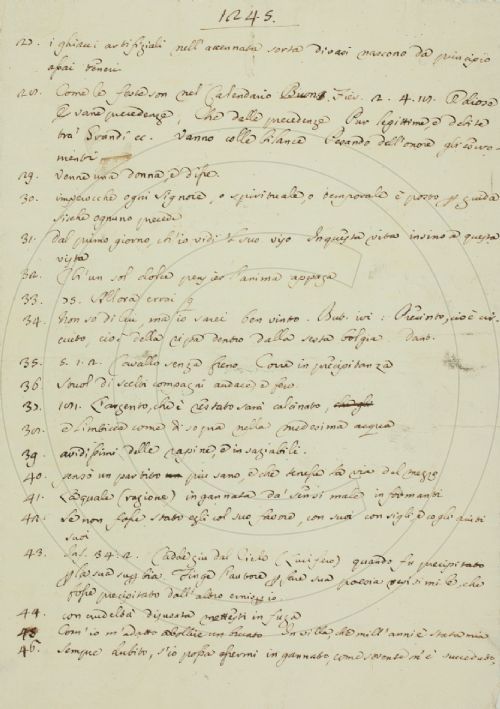 1245.
i ghiacci artifiziali nell'accennata sorta di vasi nascono da principio
assai teneri
Come le feste son nel Calendario Buon. Fier. 2. 4.
e vane precedenze, che delle precedenze Pur legittime, e debite
tra' Grandi ec. Vanno colle bilance Pesando dell'onore gli
menti
29. venne una donna, e disse.
30. imperocchè ogni Signore, o spirituale, o temporale è posto p guida
sicchè ognuno precede
31. dal primo giorno, ch'io vidi 'l suo viso In questa vita insino a questa
vista
32. Ch'un sol dolce pensier l'anima appaga
33. 75. Allora errai
34. Non so di lui, ma io sarei ben vinto. But. ivi: Precinto, cioè cir-
cuito, cioè della ripa dentro dalla sesta bolgia. Dant.
35. 5. 1. 2. Cavallo senza freno, Corre in precipitanza
36. Stuol di scelti compagni audace, e fero.
L'argento, che è restato sarà calcinato,
e limbicca come di sopra nella medesima acqua
39. avidissimi delle rapine, e insaziabili.
40. prese un partito più sano, e che tenesse la via del mezzo
41. La quale (ragione) ingannata da' sensi male informanti
42. se non fosse stato egli col suo favore, con suoi consigli, e cogli aiuti
suoi
43. Inf. 34: 2. Cadde giù dal Cielo (Lucifero) quando fu precipitato
p la sua superbia. Finge l'autore p sua poesia verisimile che
fosse precipitato dall'altro emisperio.
44. con crudeltà disusata mettesti in fuga
45. Com'io m'adatto a bollire un bucato In villa, che mill'anni è stata mia
46. sempre dubito, s'io possa essermi ingannato, come sovente m'è succeduto,